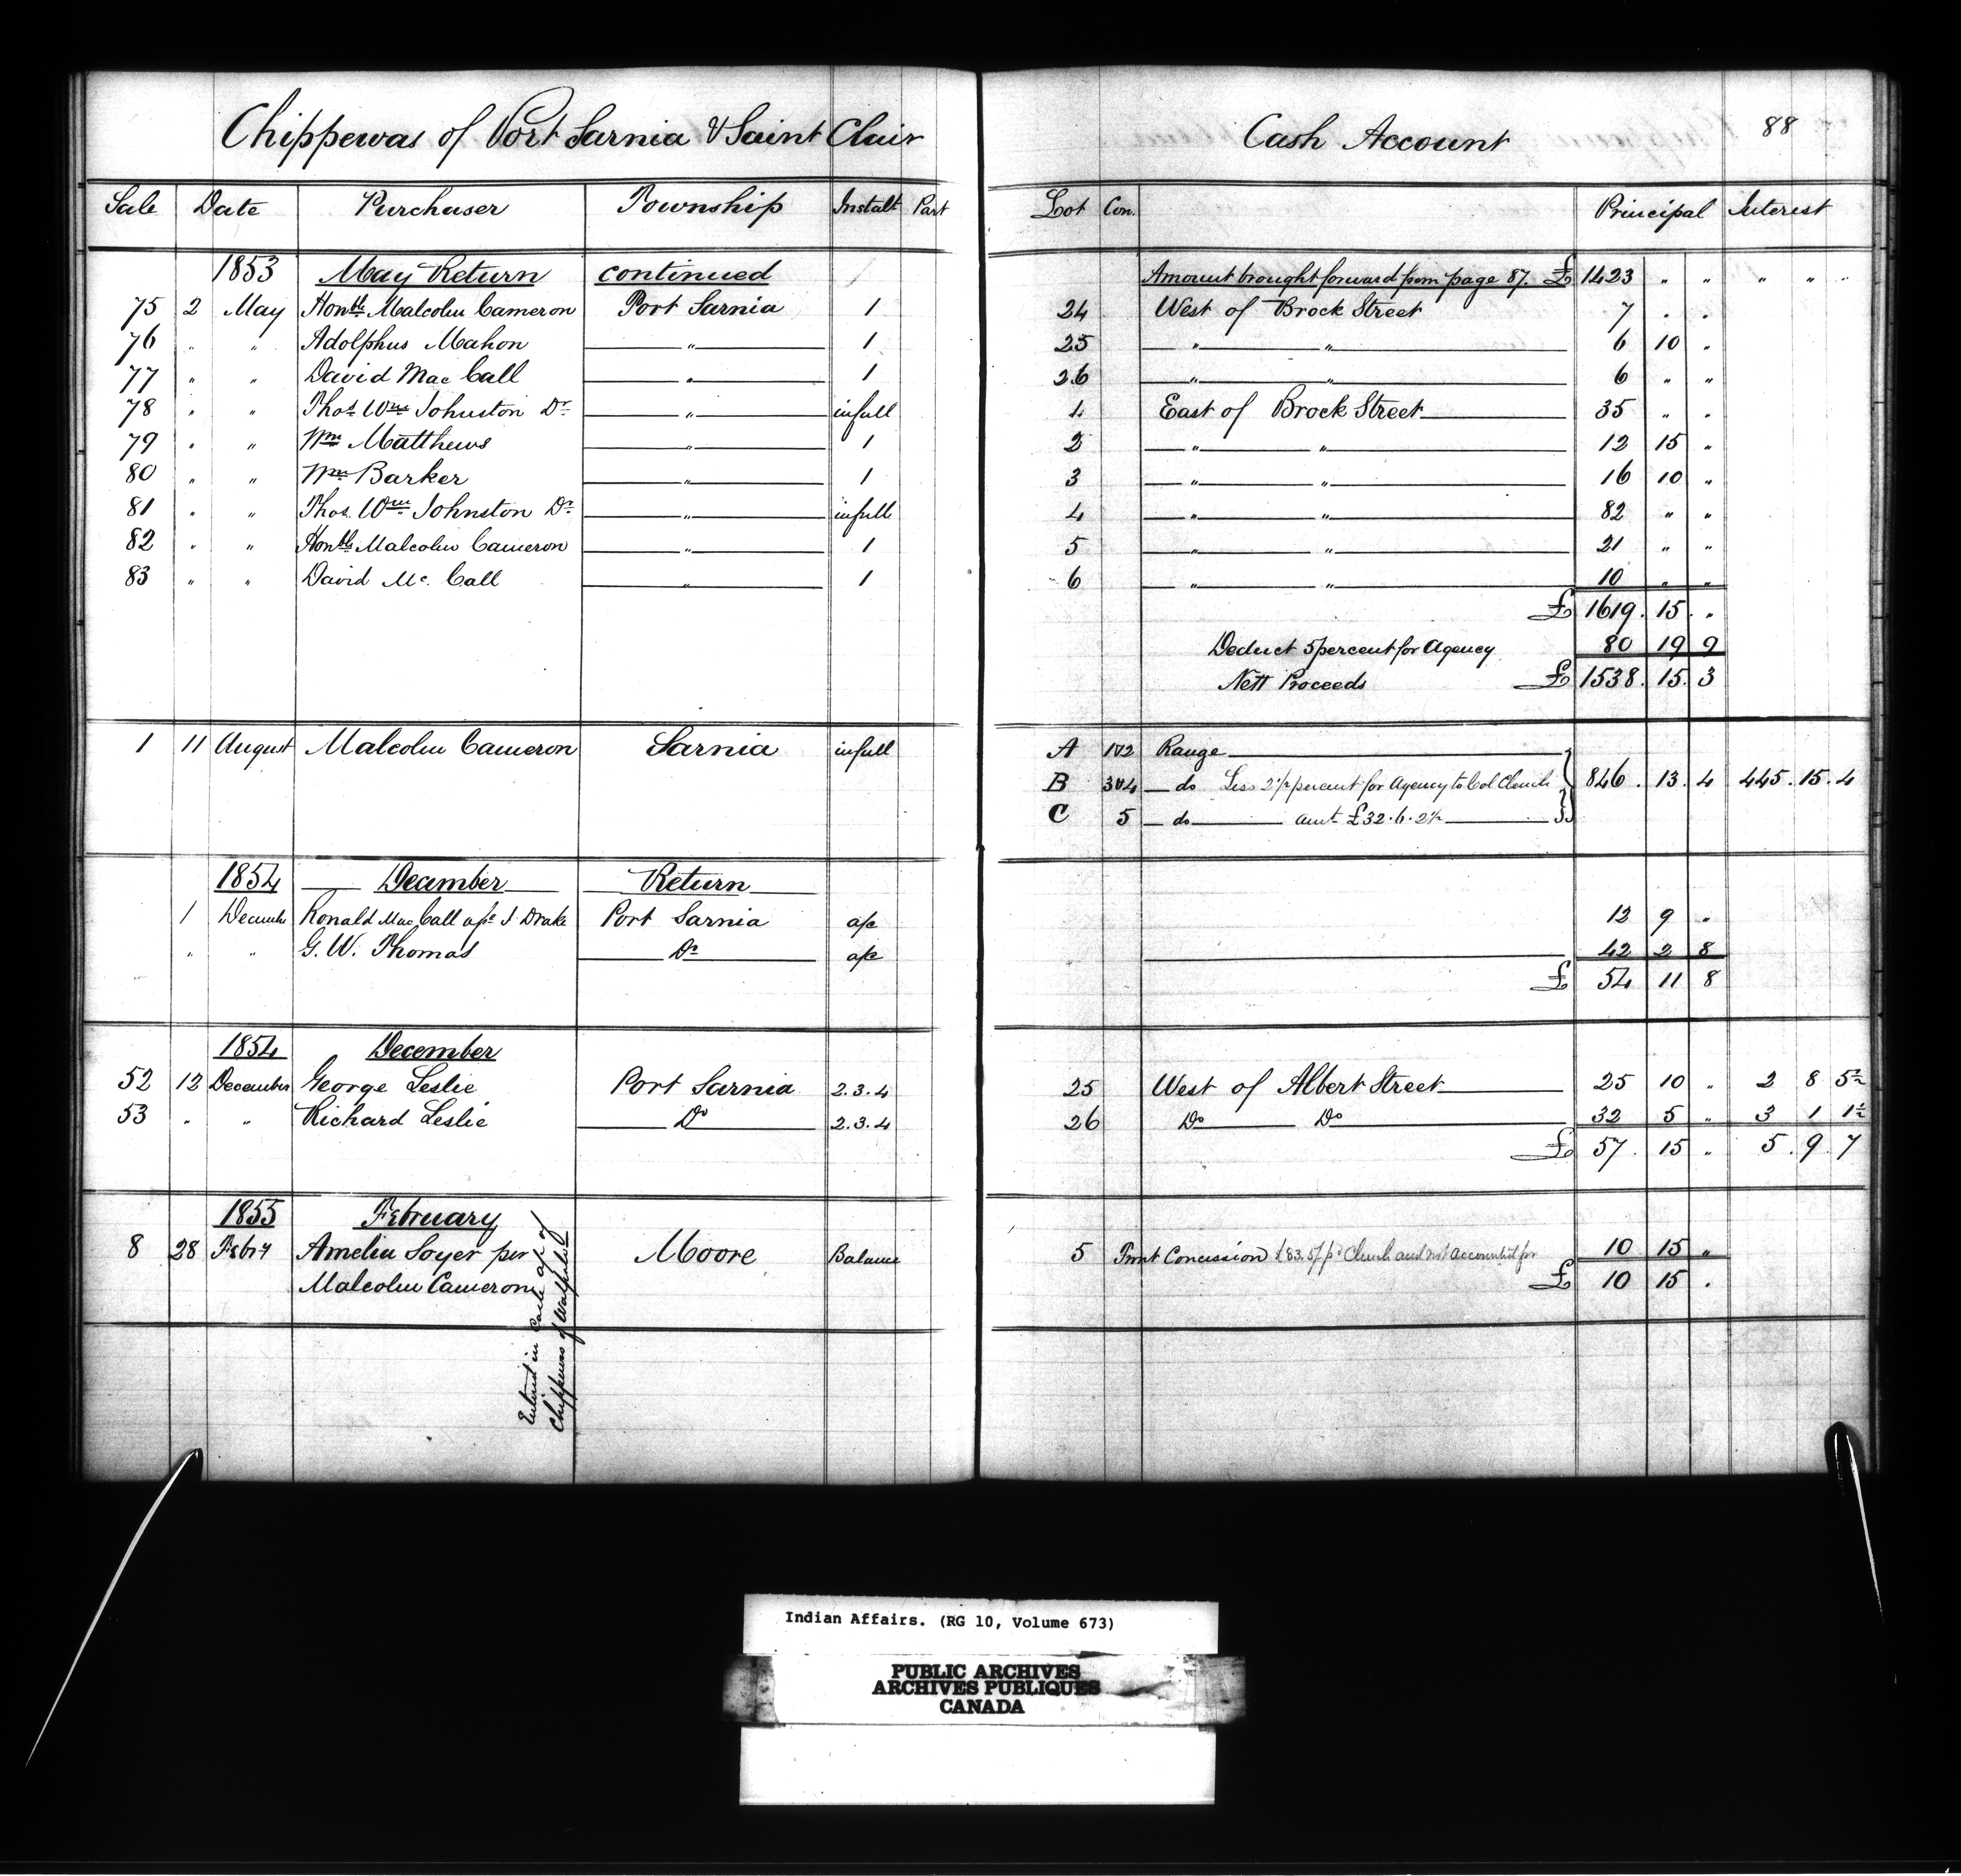 Chippewas of Port Sarnia & Saint Clair Cash Account 88
Sale Date Purchaser Township Instalt Part Lot Con. Principal Interest
1853 May Return continued Amount brought forward from page 87. £ 1423 " " " " "
75 2 May Honble Malcolm Cameron Port Sarnia 1 24 West of Brock Street 7 " "
76 " " Adolphus Mahon " 1 25 " " 6 10 "
77 " " David Mac Call " 1 26 " " 6 " "
78 " " Thos Wm Johnston Dr " infull 1 East of Brock Street 35 " "
79 " " Wm Matthews " 1 2 " " 12 15 "
80 " " Wm Barker " 1 3 " " 16 10 "
81 " " Thos. Wm Johnston Dr " infull 4 " " 82 " "
82 " " Honble Malcolm Cameron " 1 5 " " 21 " "
83 " " David Mc. Call " 1 6 " " 10 " "
£ 1619. 15. "
Deduct 5 percent for Agency 80 19 9
Nett Proceeds £ 1538. 15. 3
1 11 August Malcolm Cameron Sarnia infull A 1&2 Range
B 3&4 do Less 2½ percent for Agency to Col Clench 846. 13. 4 445. 15. 4
C 5 do amt £32.6.2½
1854 December Return
1 December Ronald Mac Call a/c J Drake Port Sarnia a/c 12 9 "
" " G. W. Thomas Do a/c 42 2 8
£ 54 11 8
1854 December
52 12 December George Leslie Port Sarnia 2.3.4 25 West of Albert Street 25 10 " 2 8 5½
53 " " Richard Leslie Do 2.3.4 26 Do Do 32 5 " 3 1 1½
£ 57. 15 " 5. 9. 7
1855 February
8 28 Febry Amelia Soyer per Moore Balance 5 Front Concession £83.5/ pd Clench and not accounted for 10 15 "
Malcolm Cameron £ 10 15 "
Entered in Cash a/c of
Chippewas of Walpole
Indian Affairs. (RG 10, Volume 673)
PUBLIC ARCHIVES
ARCHIVES PUBLIQUES
CANADA